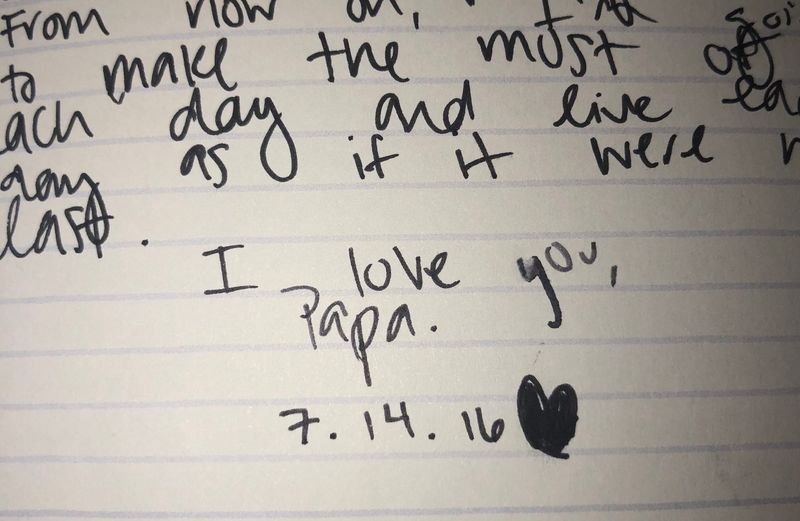 From now on,
to make the most of
ach day and live ea
day as if it were
last.
I love you,
Papa.
7.14.16